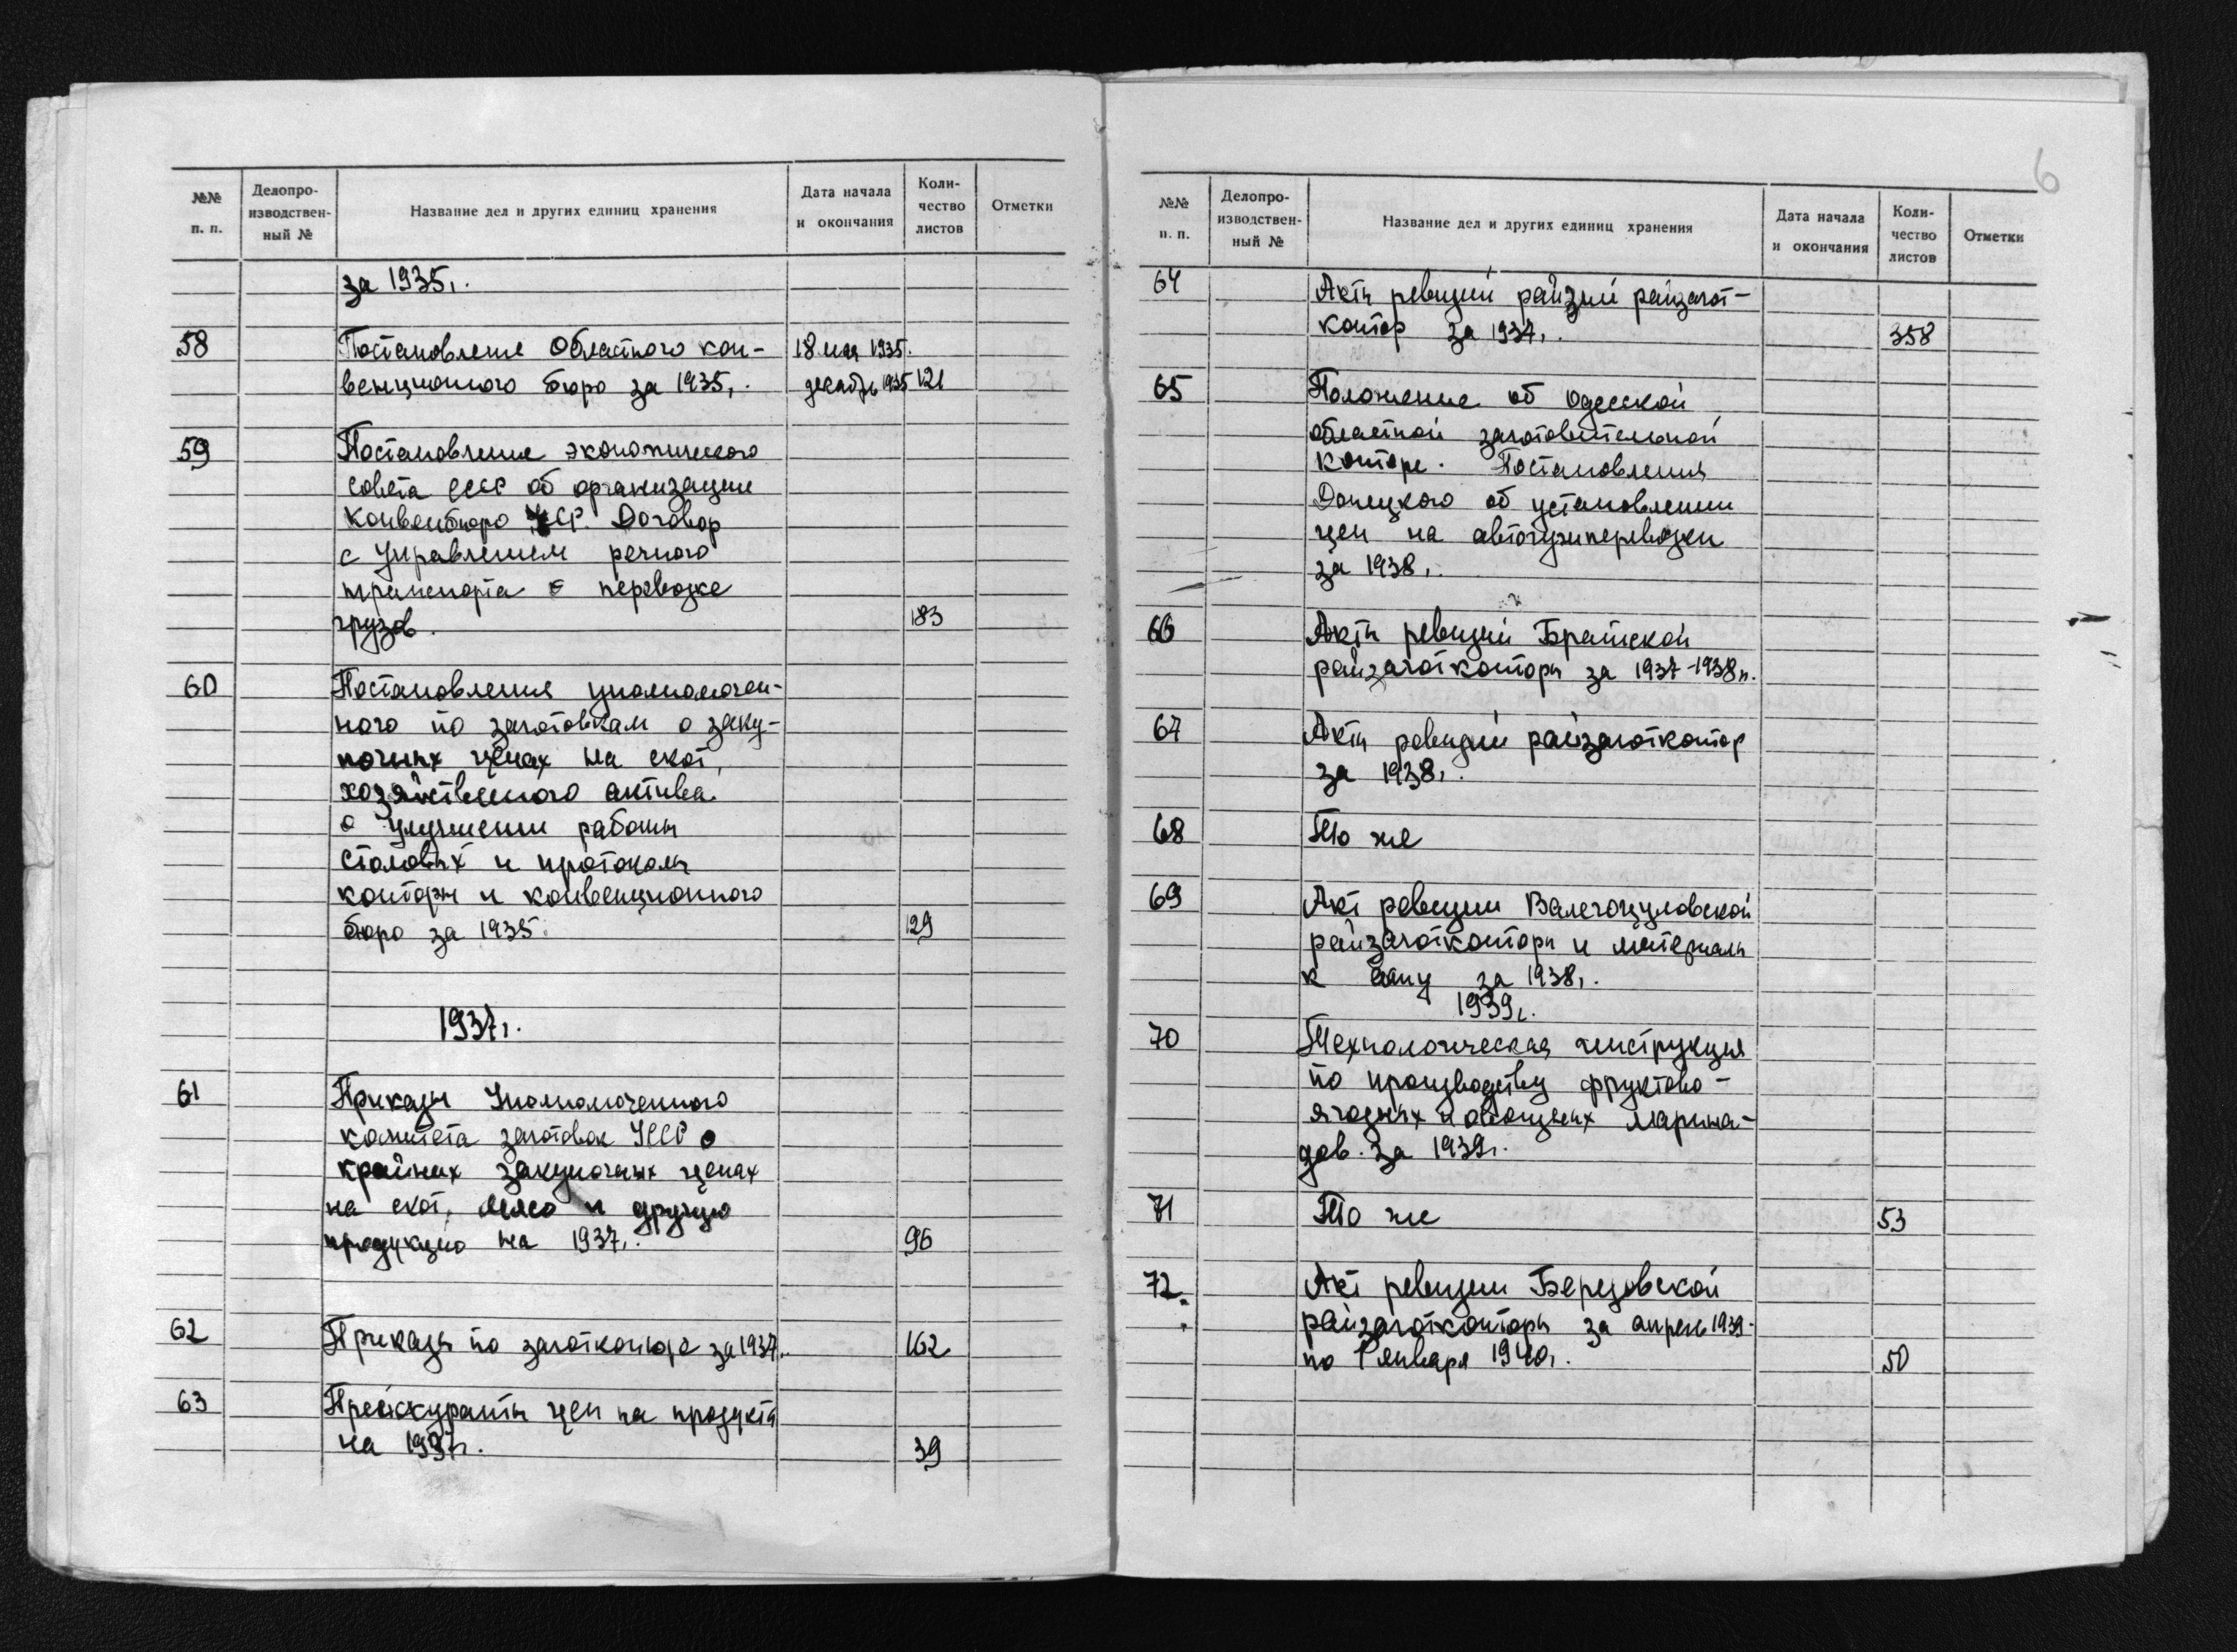 №№ п. п.
Делопро-
изводствен-
ный №
Название дел и других единиц хранения
Дата начала
и окончания
Коли-
чество
листов
Отметки
за 1935г.
58 Постановление Областного кон- 18 мая 1935.
венционного бюро за 1935г. декабрь 1935 121
59 Постановление экономического
совета СССР об организации
конвенбюро УССР. Договор
с Управлением речного
транспорта о перевозке
грузов. 183
60 Постановления уполномочен-
ного по заготовкам о заку-
почных ценах на скот,
хозяйственного актива
о улучшении работы
столовых и протоколы
конторы и конвенционного
бюро за 1935. 129
1937г.
61 Приказы Уполномоченного
комитета заготовок УССР о
крайних закупочных ценах
на скот, мясо и другую
продукцию на 1937г. 96
62 Приказы по заготконторе за 1937г. 162
63 Прейскуранты цен на продукты
на 1937г. 39
6
№№ п. п.
Делопро-
изводствен-
ный №
Название дел и других единиц хранения
Дата начала
и окончания
Коли-
чество
листов
Отметки
64 Акты ревизий райзаготконтор
контор за 1937г. 358
65 Положение об Одесской
областной заготовительной
конторе. Постановления
Донецкого об установлении
цен на автогужперевозки
за 1938г.
66 Акты ревизий Братской
райзаготконторы за 1937-1938гг.
67 Акты ревизий райзаготконтор
за 1938г.
68 То же
69 Акт ревизии Валегоцуловской
райзаготконторы и материалы
к нему за 1938г.
1939г.
70 Технологическая инструкция
по производству фруктово-
ягодных и овощных марина-
дов. за 1939г.
71 То же 53
72. Акт ревизии Березовской
райзаготконторы за апрель 1939-
по 1 января 1940г. 50